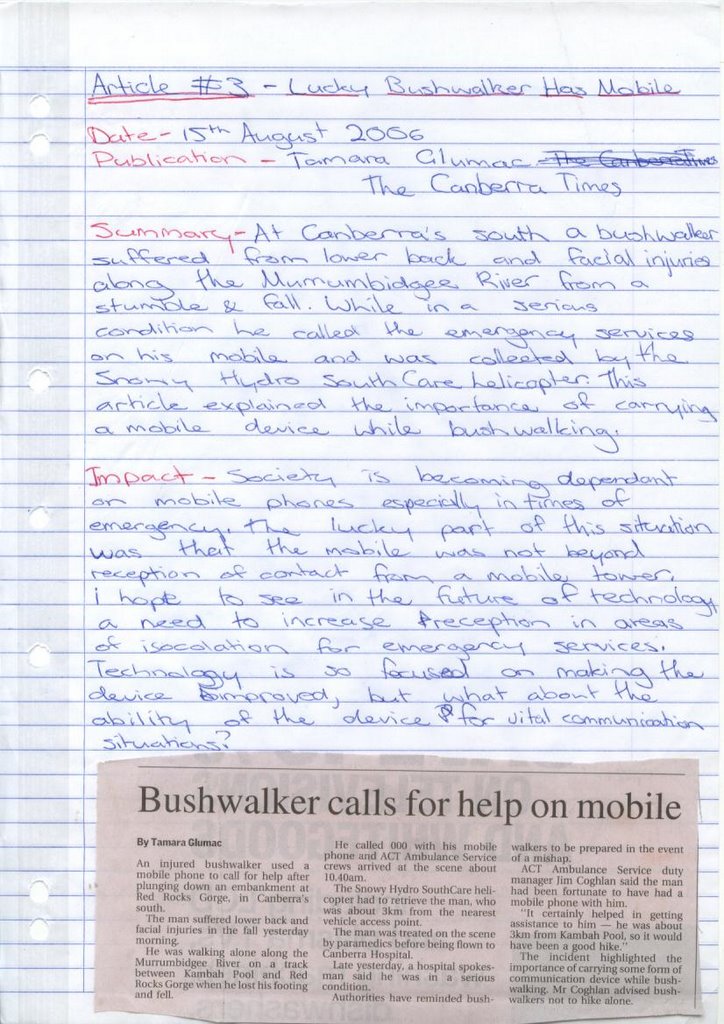 Article #3 - Lucky Bushwalker Has Mobile
Date - 15th August 2006
Publication - Tamara Glumac The Canberra Times
The Canberra Times
Summary - At Canberra's south a bushwalker
suffered from lower back and facial injuries
along the Murrumbidgee River from a
stumble & fall. While in a serious
condition he called the emergency services
on his mobile and was collected by the
Snowy Hydro SouthCare helicopter. This
article explained the importance of carrying
a mobile device while bushwalking.
Impact - Society is becoming dependant
on mobile phones especially in times of
emergency. The lucky part of this situation
was that the mobile was not beyond
reception of contact from a mobile tower.
i hope to see in the future of technology
a need to increase reception in areas
of isocolation for emergency services.
Technology is so focused on making the
device improved, but what about the
ability of the device for vital communication
situations?
Bushwalker calls for help on mobile
By Tamara Glumac
An injured bushwalker used a
mobile phone to call for help after
plunging down an embankment at
Red Rocks Gorge, in Canberra's
south.
The man suffered lower back and
facial injuries in the fall yesterday
morning.
He was walking alone along the
Murrumbidgee River on a track
between Kambah Pool and Red
Rocks Gorge when he lost his footing
and fell.
He called 000 with his mobile
phone and ACT Ambulance Service
crews arrived at the scene about
10.40am.
The Snowy Hydro SouthCare heli-
copter had to retrieve the man, who
was about 3km from the nearest
vehicle access point.
The man was treated on the scene
by paramedics before being flown to
Canberra Hospital.
Late yesterday, a hospital spokes-
man said he was in a serious
condition.
Authorities have reminded bush-
walkers to be prepared in the event
of a mishap.
ACT Ambulance Service duty
manager Jim Coghlan said the man
had been fortunate to have had a
mobile phone with him.
"It certainly helped in getting
assistance to him — he was about
3km from Kambah Pool, so it would
have been a good hike."
The incident highlighted the
importance of carrying some form of
communication device while bush-
walking. Mr Coghlan advised bush-
walkers not to hike alone.